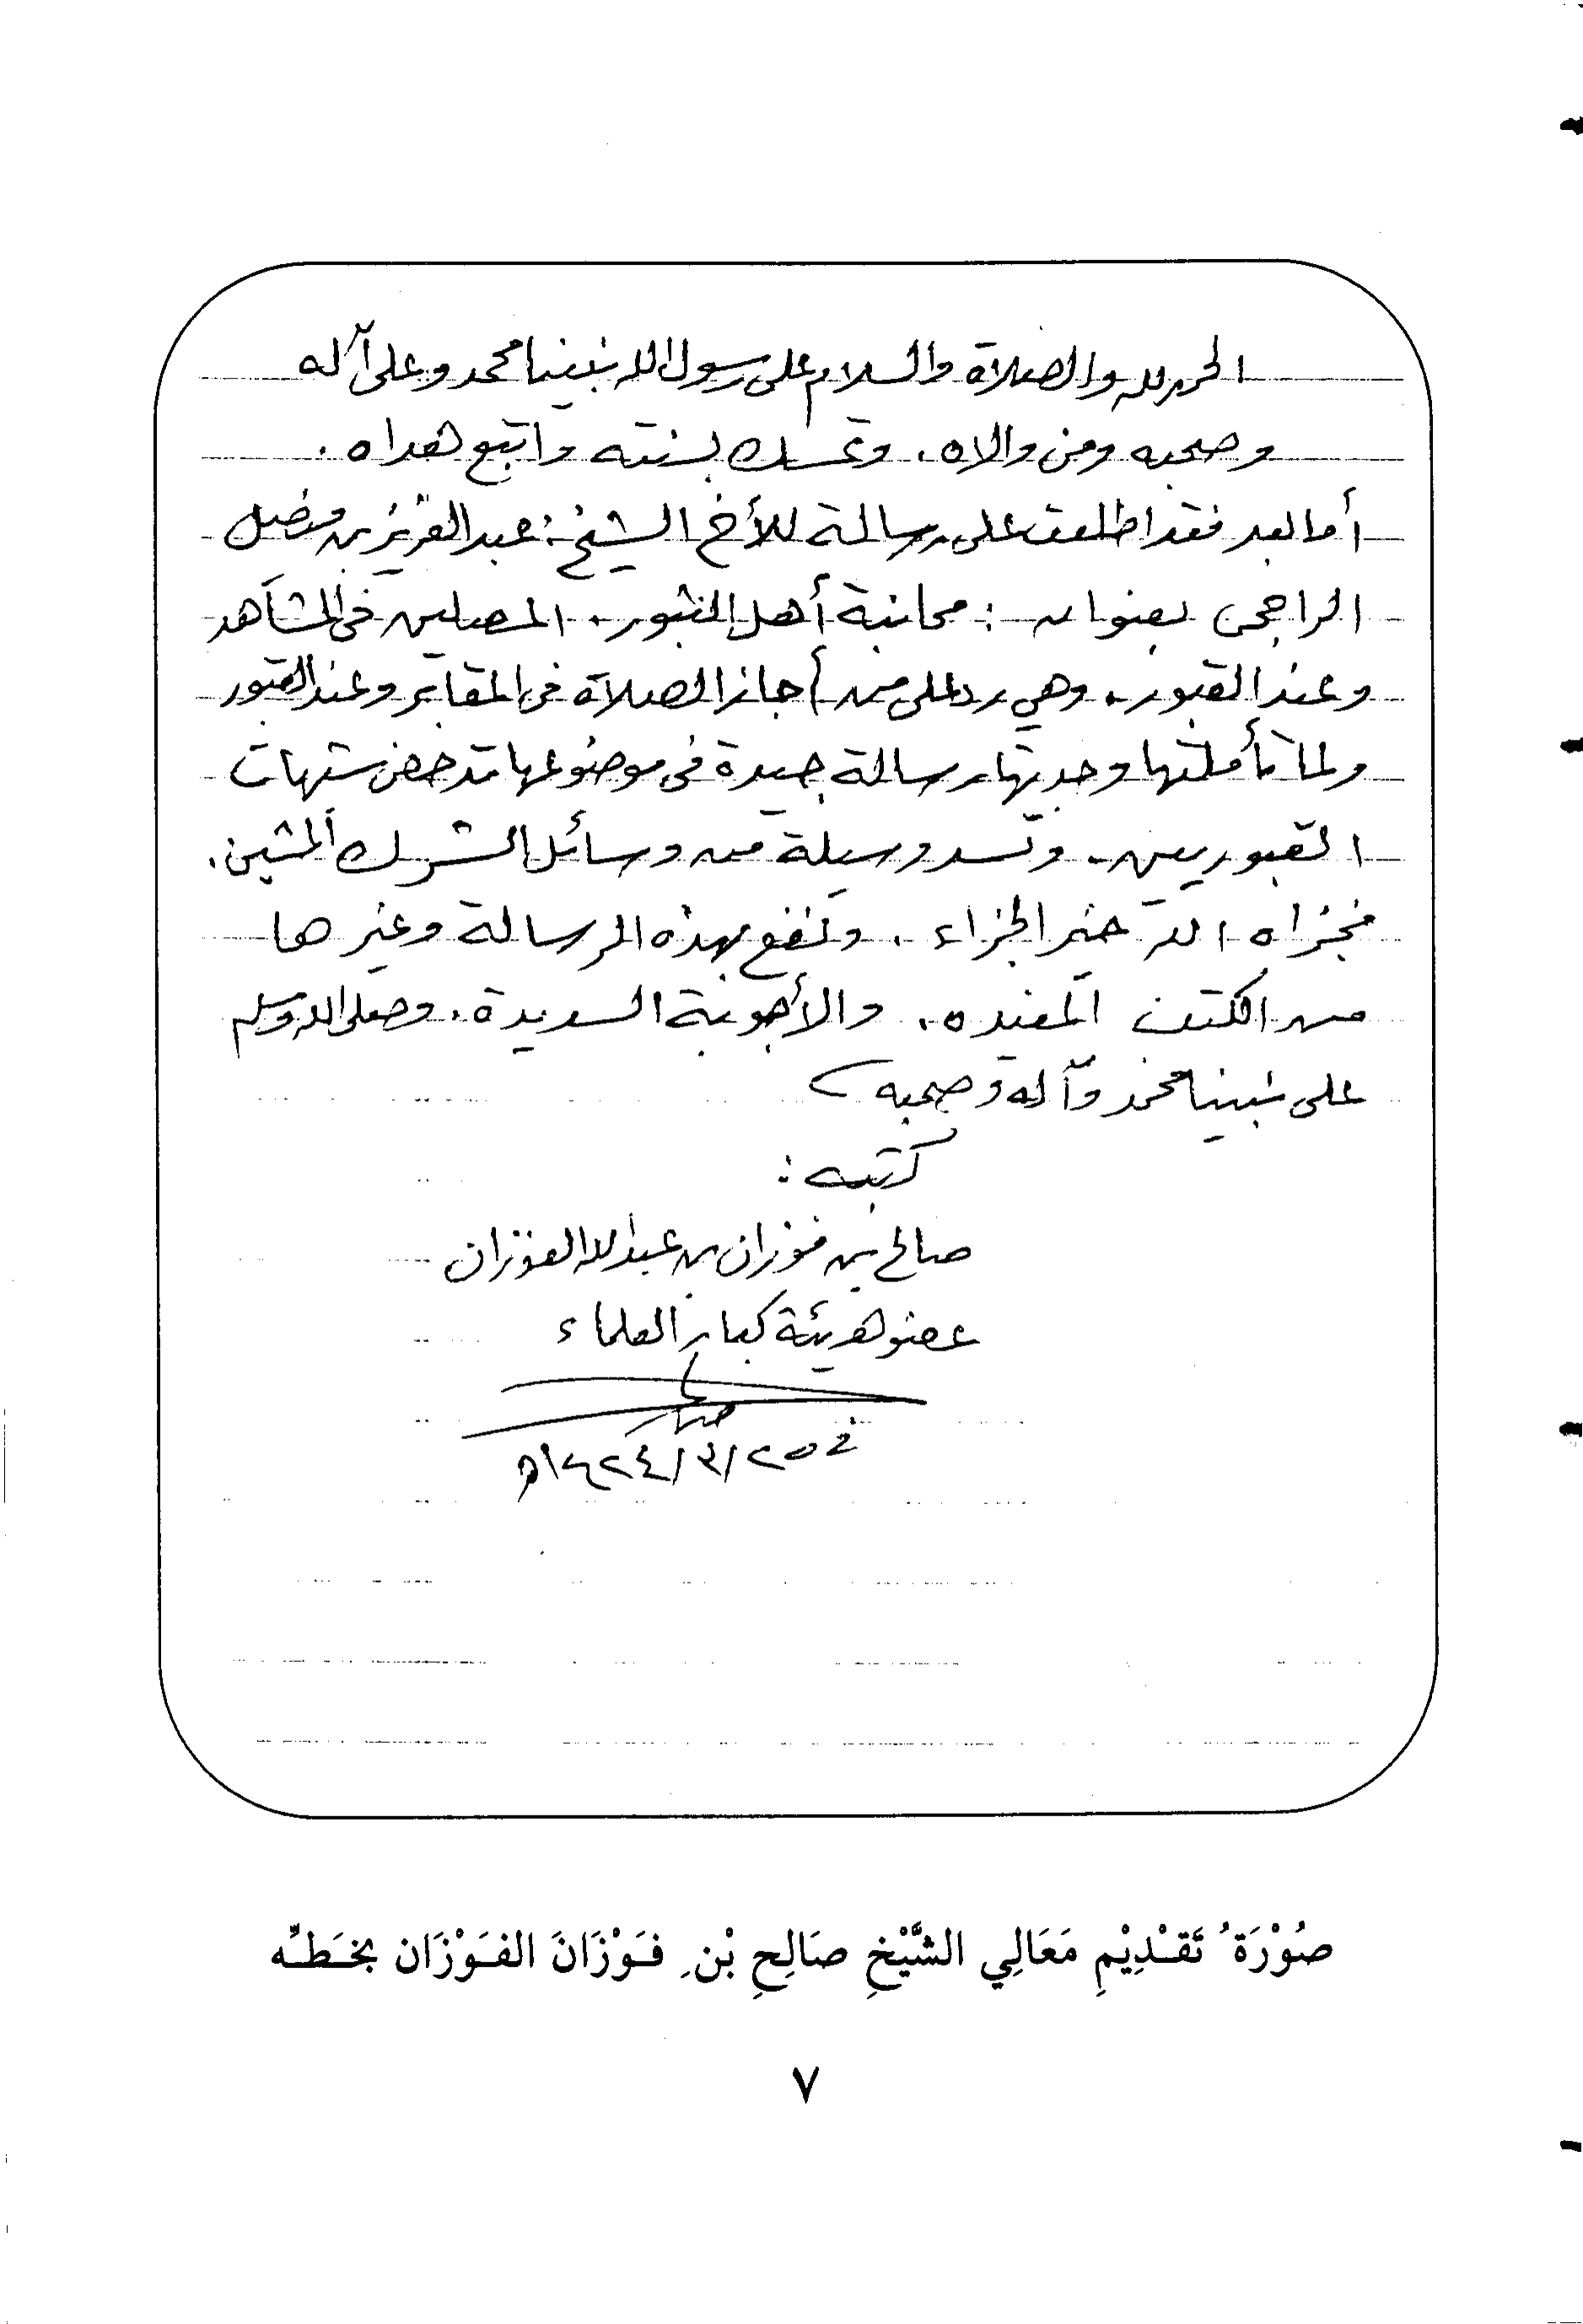 الحمد لله والصلاة والسلام على رسول الله نبينا محمد وعلى آله
وصحبه ومن والاه، وتمسك بسنته واتبع هداه.
أما بعد فقد اطلعت على رسالة للأخ الشيخ: عبد العزيز بن فيصل
الراجحي بعنوان: مجانبة أهل الثبور. المصلين في المشاهد
وعند القبور. وهي رد على من أجاز الصلاة في المقابر وعند القبور
ولما تأملتها وجدتها رسالة جيدة في موضوعها تدحض شبهات
القبوريين. وتسد وسيلة من وسائل الشرك المشين.
فجزاه الله خير الجزاء، ونفع بهذه الرسالة وغيرها
من الكتب المفيده، والأجوبة السديدة، وصلى الله وسلم
على نبينا محمد وآله وصحبه
كتبه:
صالح بن فوزان بن عبد الله الفوزان
عضو هيئة كبار العلماء
في ٢٥/٣/١٤٢٤هـ
صُوْرَةُ تَقْدِيْمِ مَعَالِي الشَّيْخِ صَالِحِ بْنِ فَوْزَانَ الفَوْزَان بخَطِّه
٧